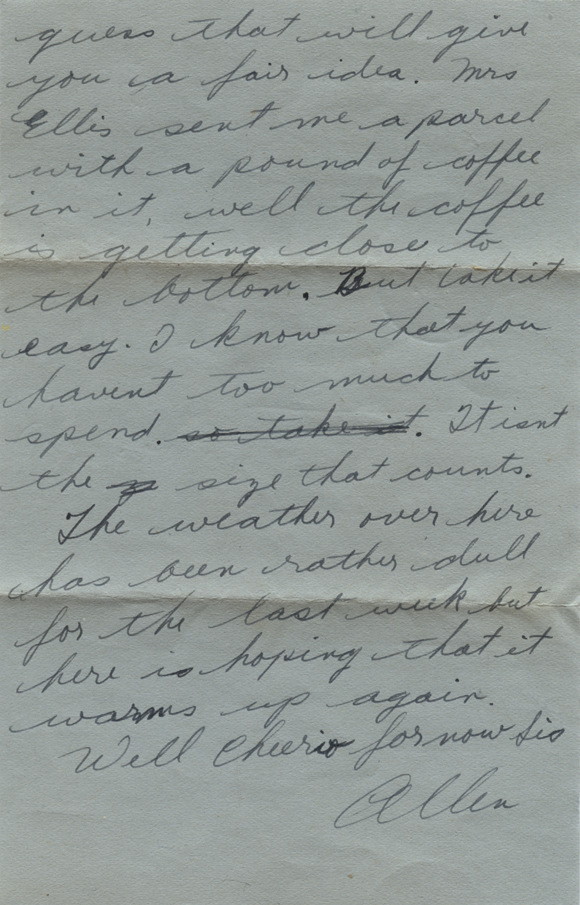 guess that will give
you a fair idea. Mrs
Ellis sent me a parcel
with a pound of coffee
in it, well the coffee
is getting close to
the bottom. But take it
easy. I know that you
havent too much to
spend. so take it. It isnt
the size that counts.
The weather over here
has been rather dull
for the last week but
here is hoping that it
warms up again.
Well Cheerio for now Sis
Allen